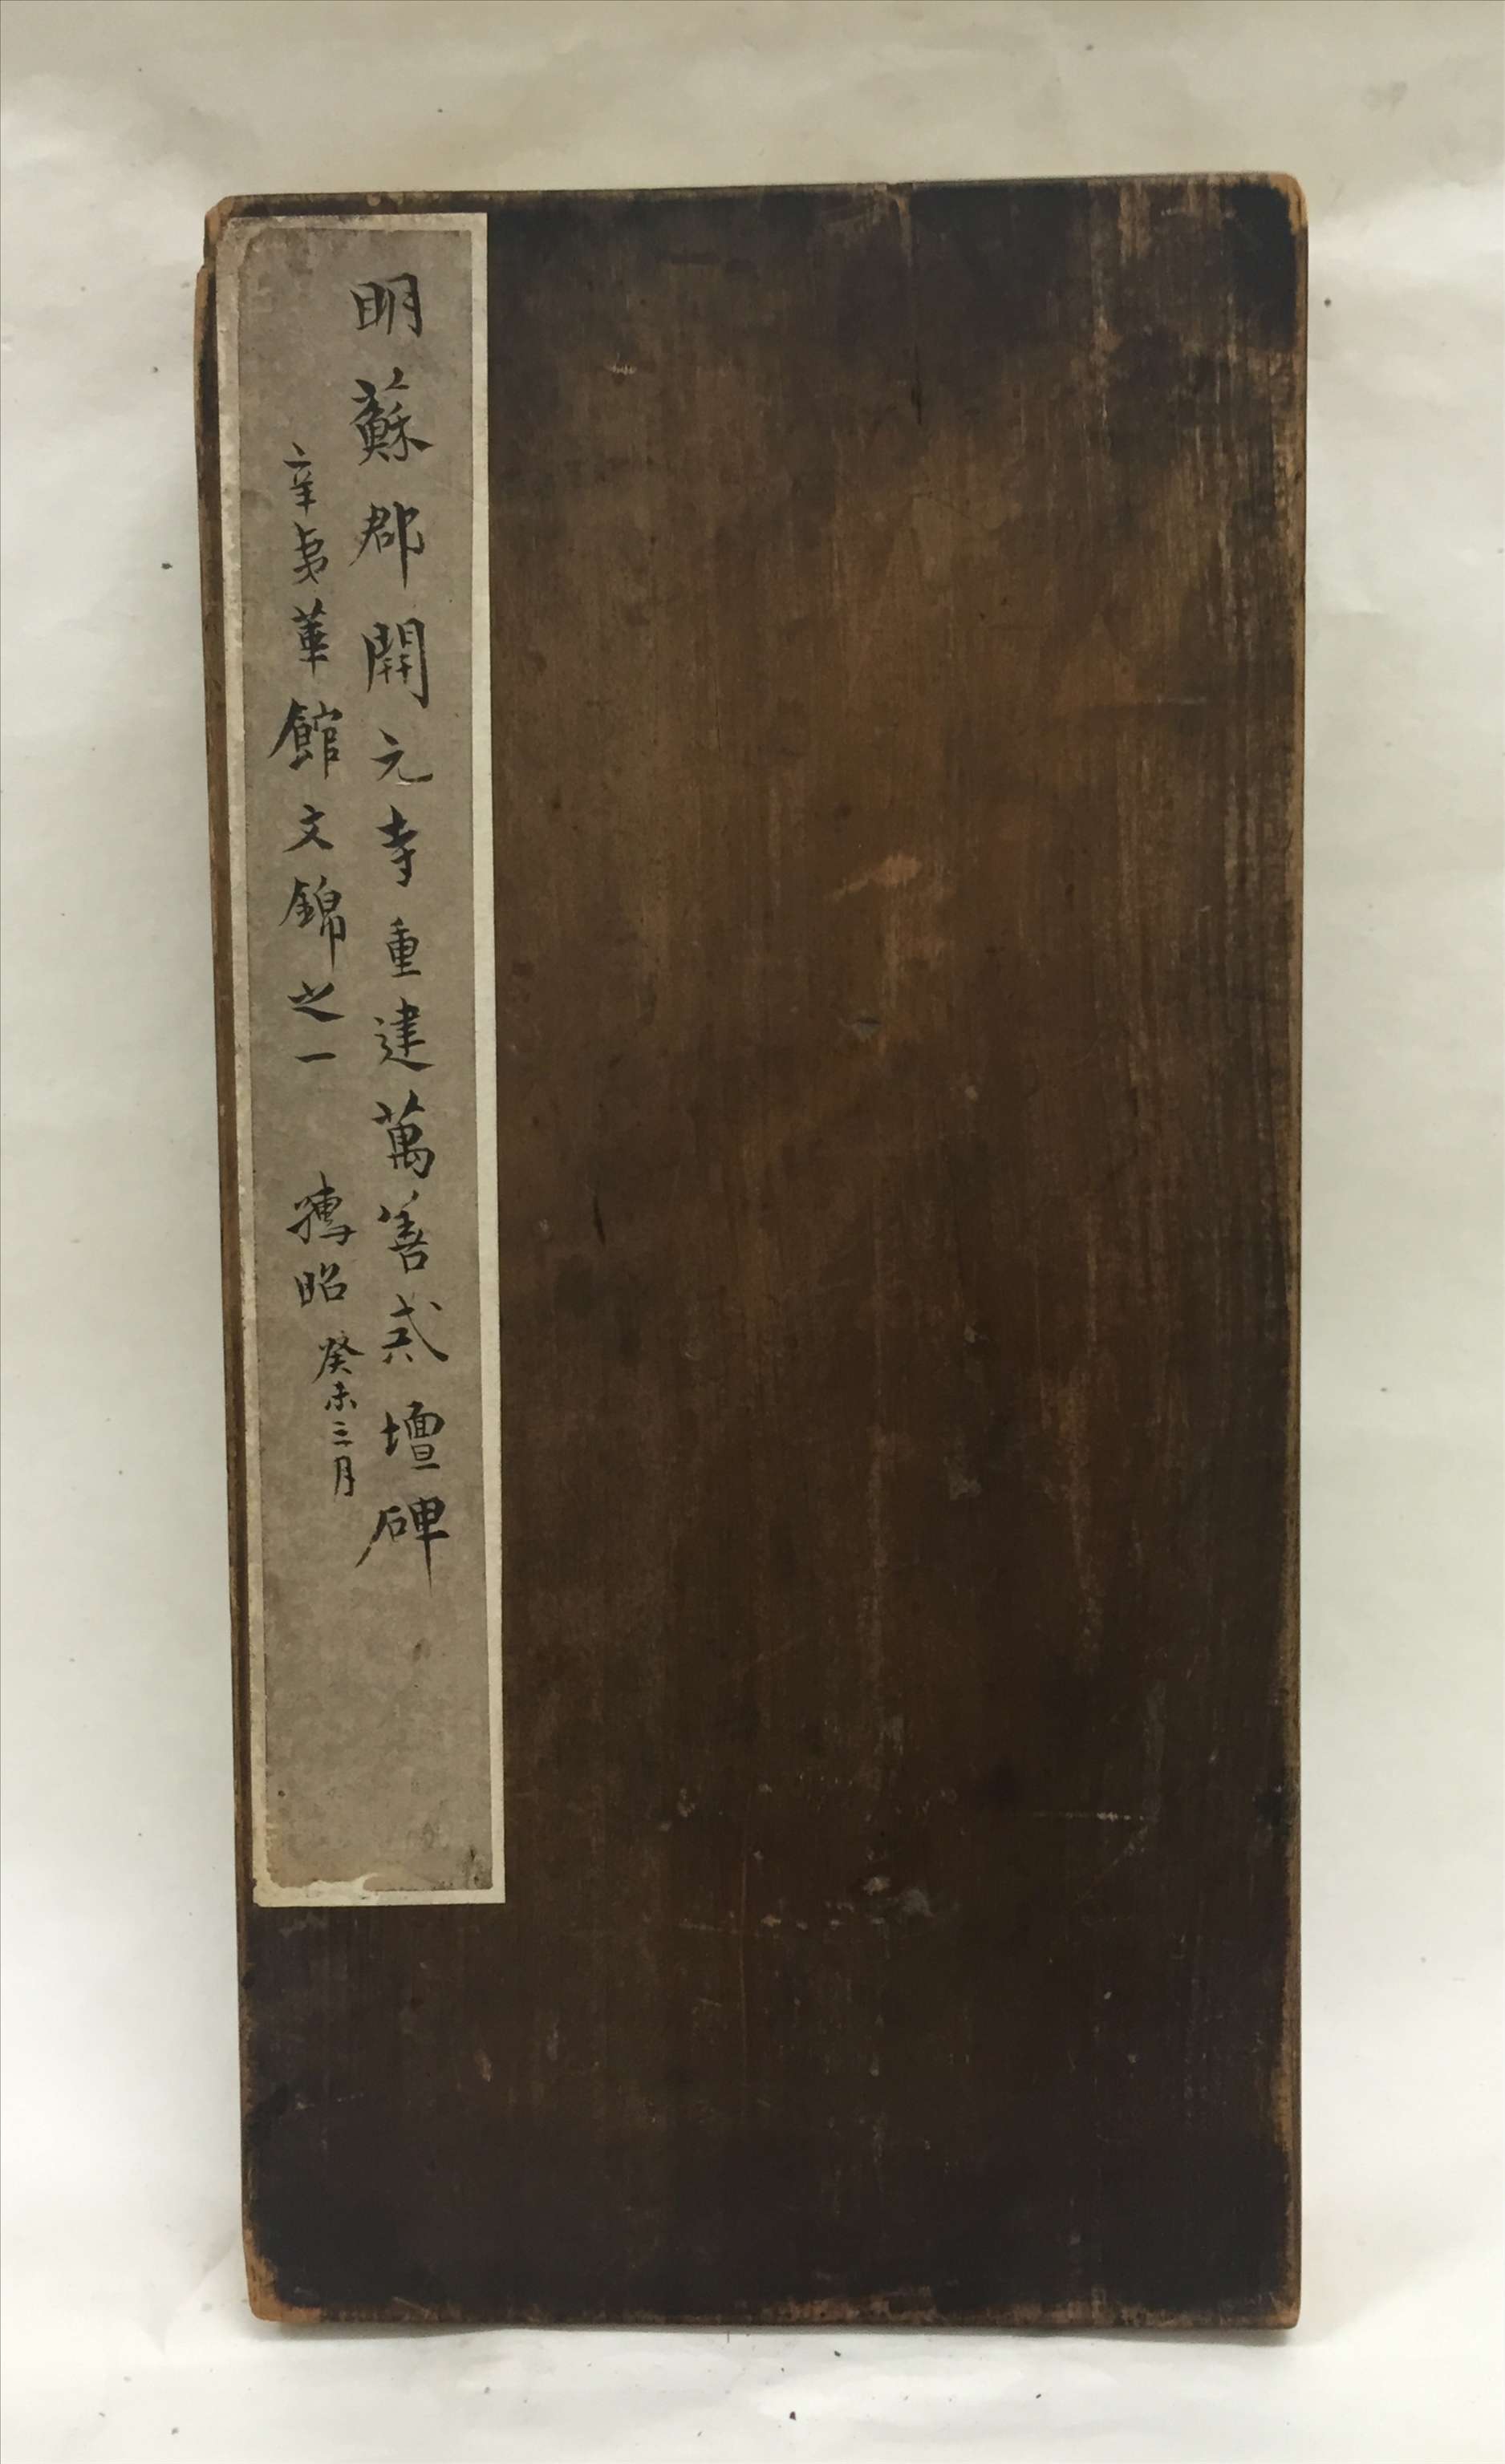 明蘇郡開元寺重建萬善戒壇碑
辛夷華館文錦之一 昭
癸未三月